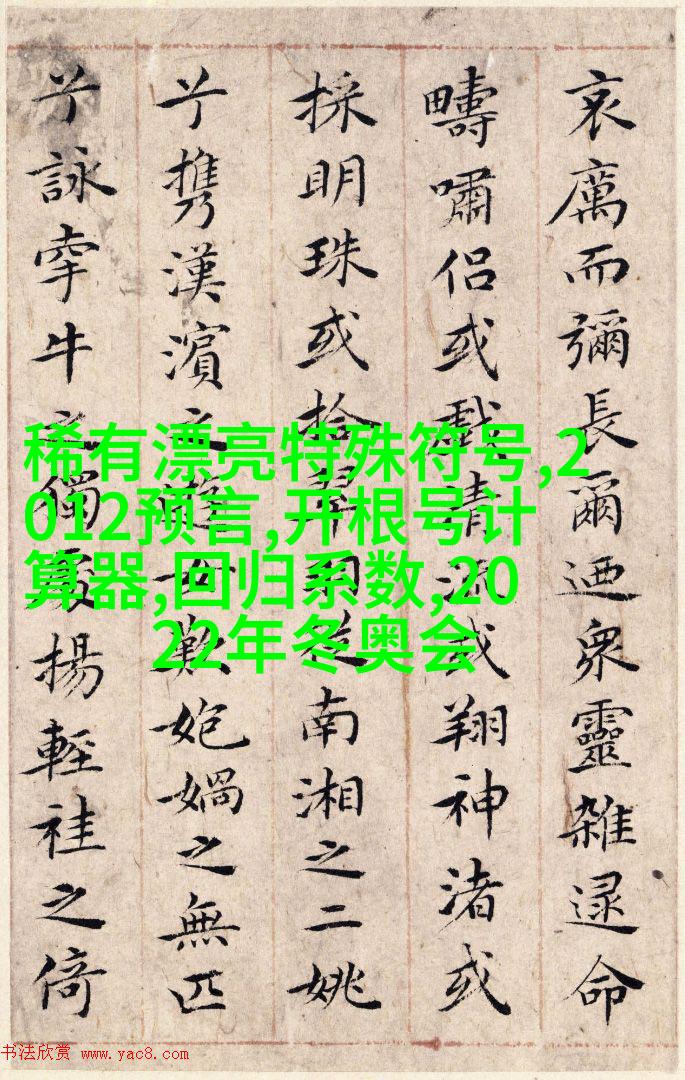 哀厲而彌長爾迺衆靈雜遝命
疇嘯侶或戲清流或翔神渚或
採明珠或拾翠羽從南湘之二姚
兮攜漢濱之遊女歎媧之無匹
兮詠牽牛之獨處揚輕袿之倚
稀有漂亮特殊符号,2
012预言,开根号计
算器,回归系数,20
22年冬奥会
书法欣赏 www.yac8.com